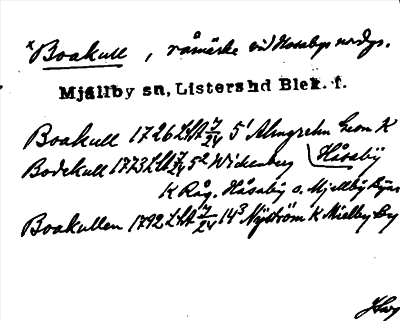 *Boakull, råmärke vid Hosabys nordgs.
Mjällby sn, Listers hd Blek. l.
Boakull 1726 Lht 7/24 5¹ Almgrehn Geom K
Bodekull 1773 Lht 7/24 5² Wickenberg Håsaby
K Råg. Håsaby o. Mjellby Byar
Boakullen 1792 Lht 7/24 14³ Nyström K Mielby By